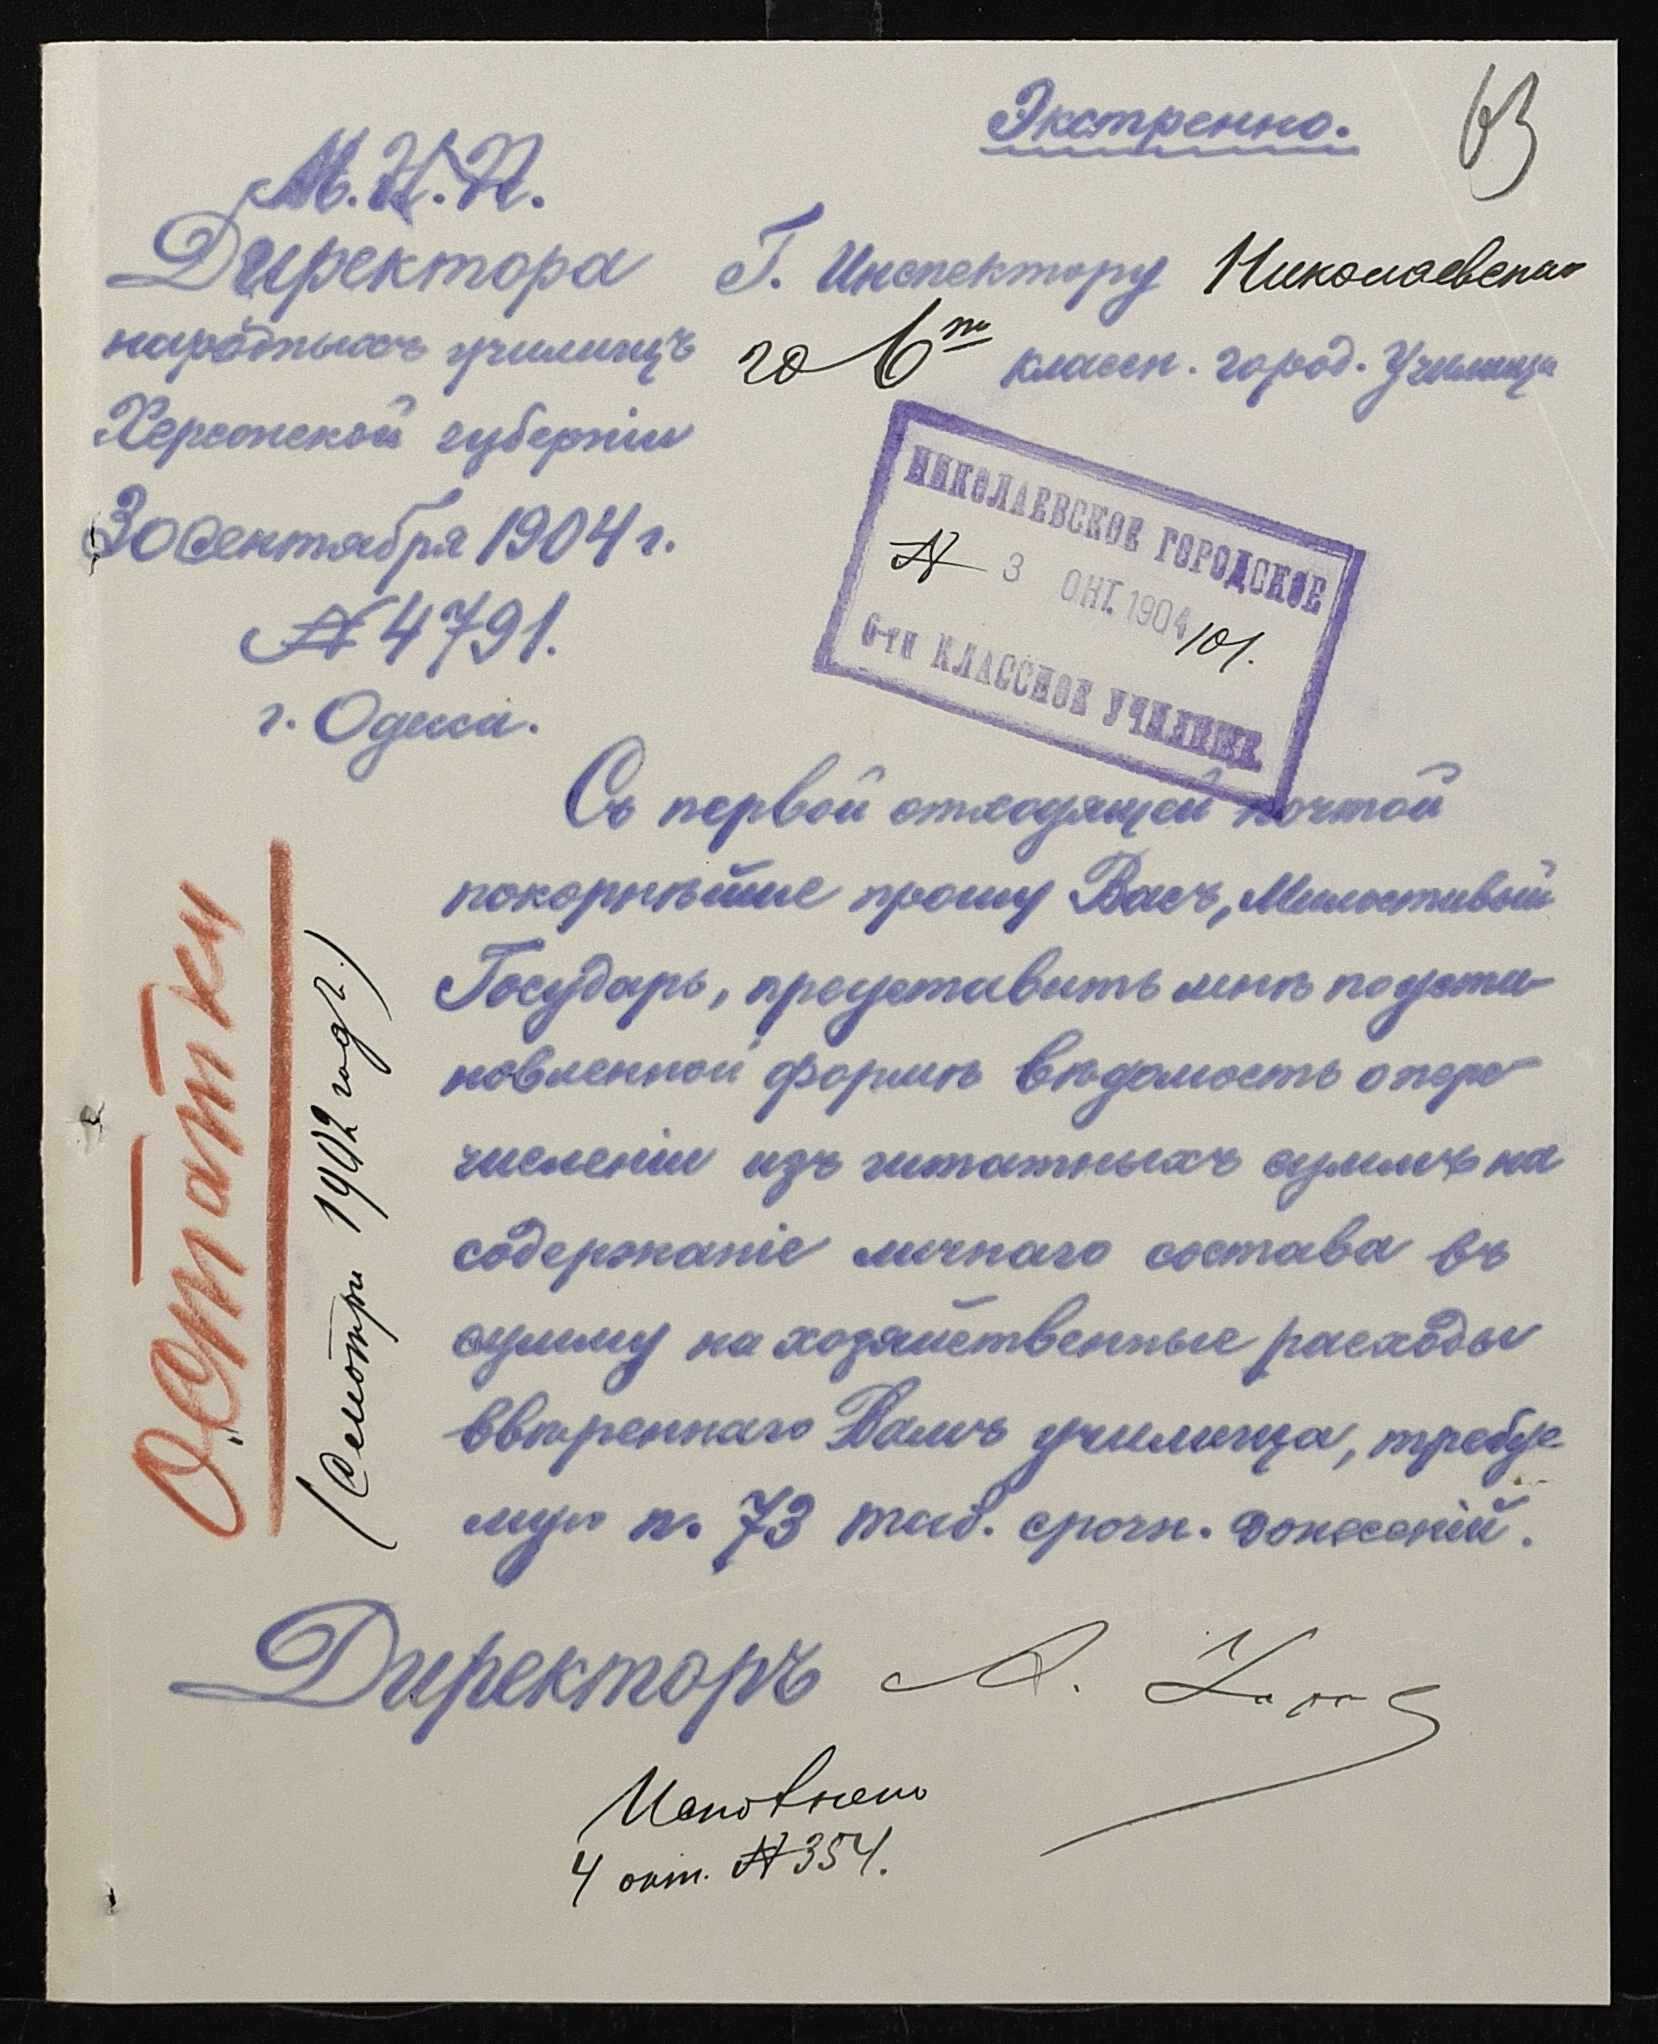 Экстренно.
63
М.Н.П.
Директора
народныхъ училищъ
Херсонской губерніи
30 Сентября 1904 г.
№ 4791.
г. Одесса.
Г. Инспектору Николаевска
го 6ти классн. город. Училища
НИКОЛАЕВСКОЕ ГОРОДСКОЕ
№ 3 ОКТ. 1904 101.
6-ти КЛАССНОЕ УЧИЛИЩЕ
Съ первой отходящей почтой
покорнѣйше прошу Васъ, Милостивый
Государь, представить мнѣ по уста-
новленной формѣ вѣдомость о пере-
численіи изъ штатныхъ суммъ на
содержаніе личнаго состава въ
сумму на хозяйственные расходы
ввѣреннаго Вамъ училища, требуе-
мую п. 73 таб. срочн. донесеній.
Остатки
(Смотри 1902 годъ.)
Директоръ А.
Исполнено
4 окт. № 354.